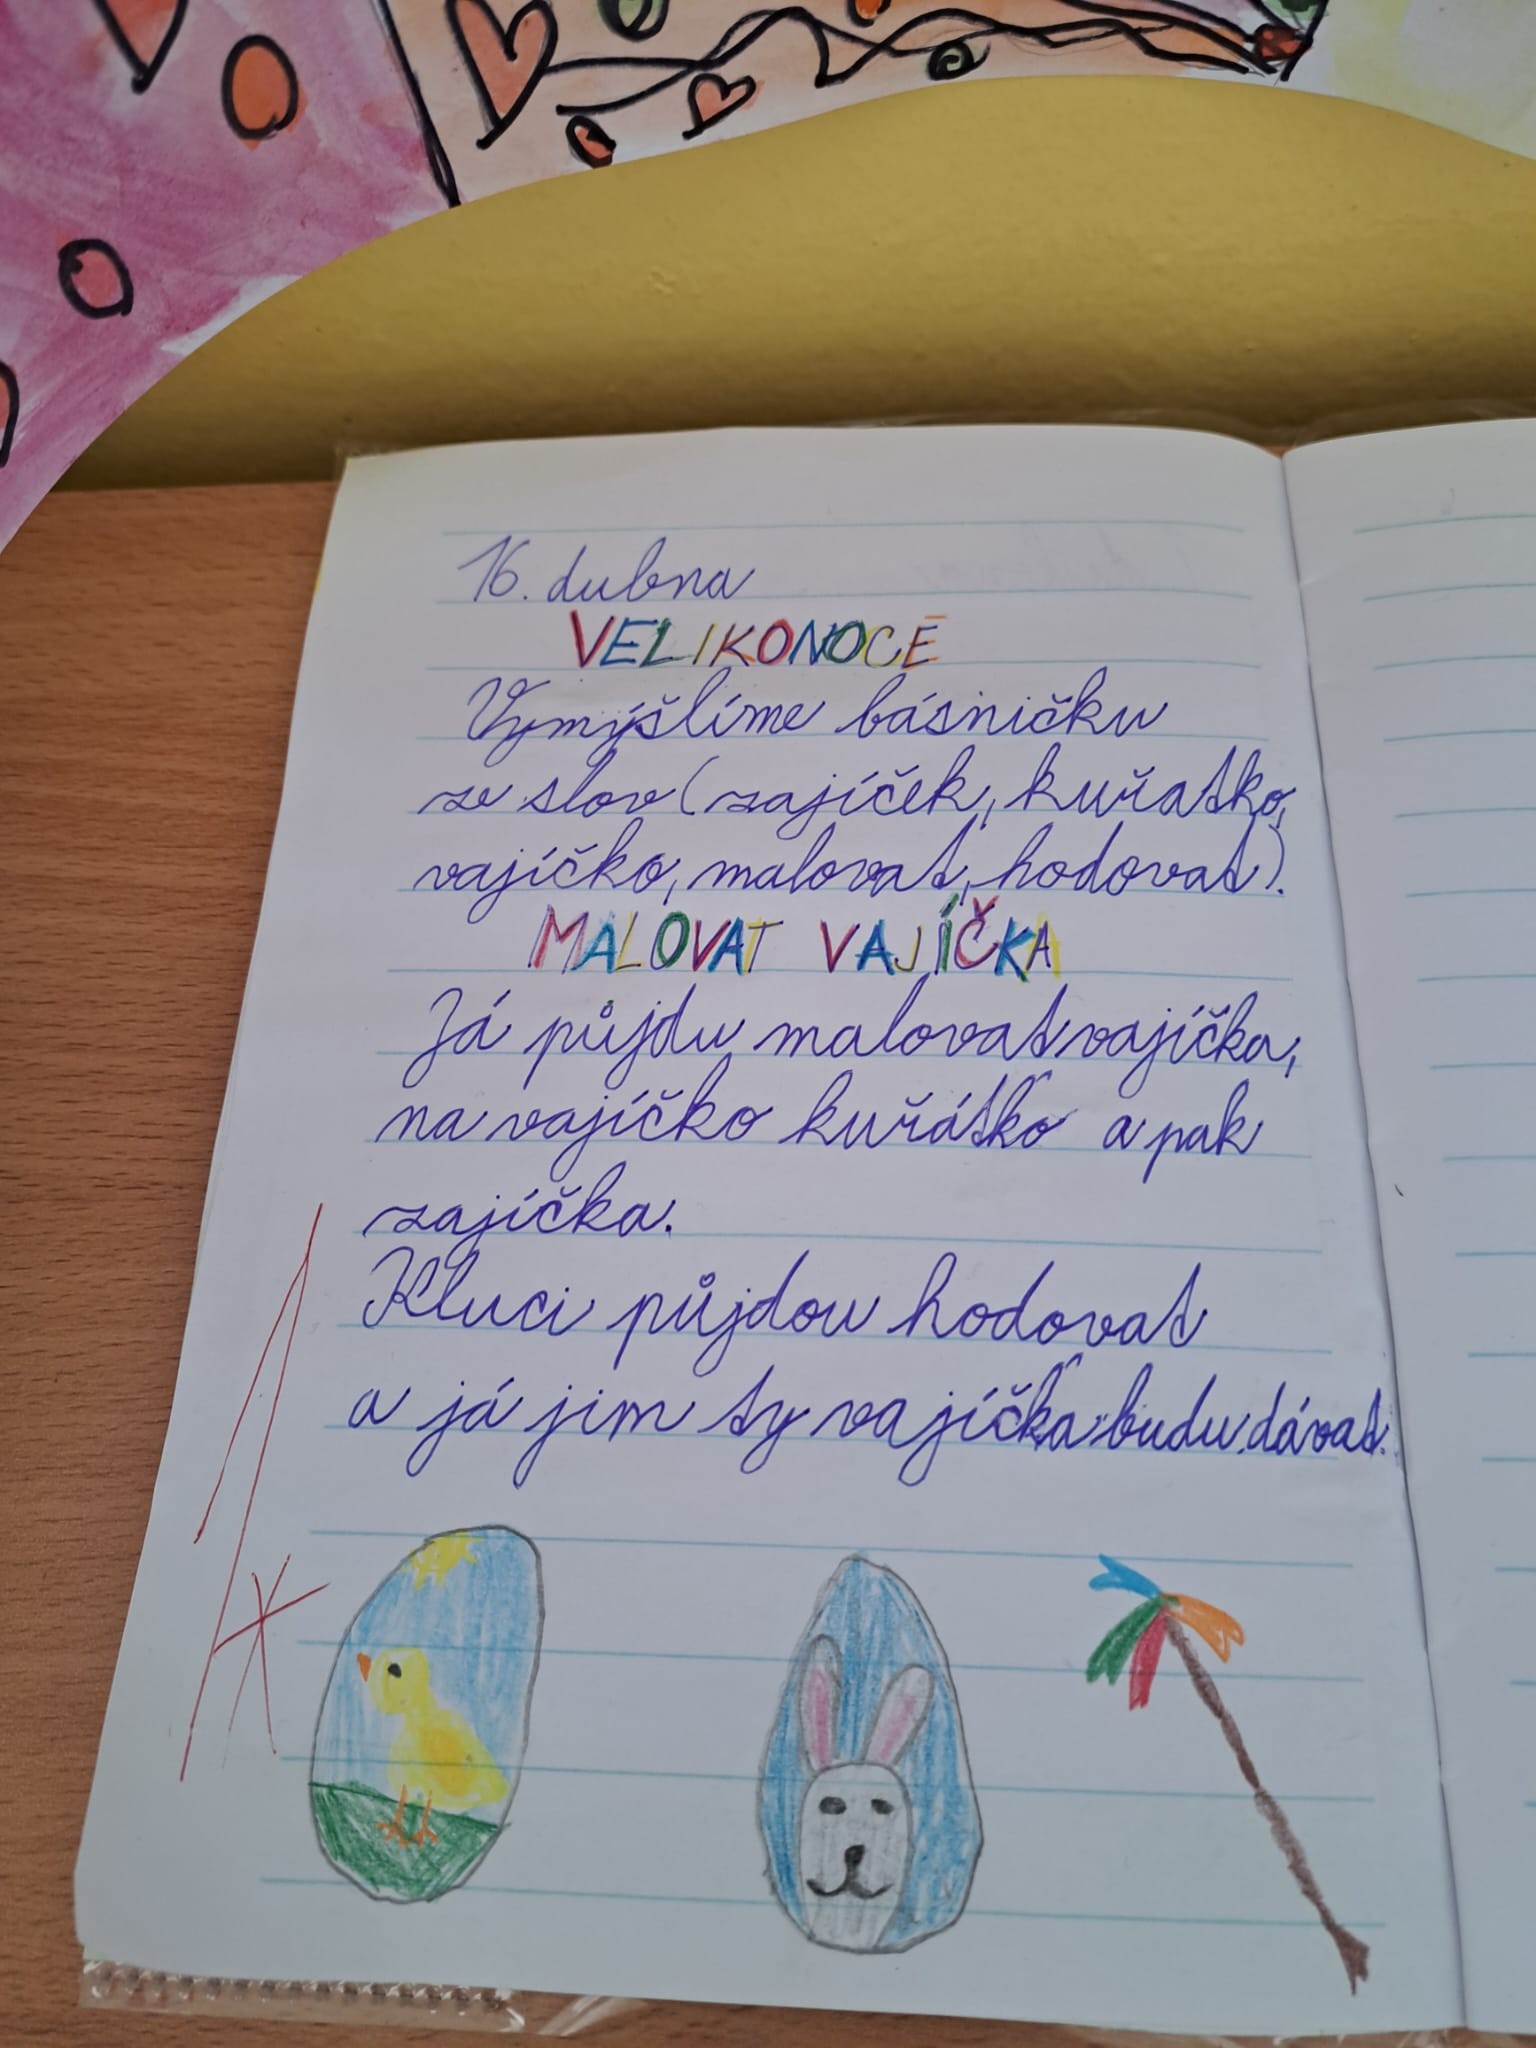 16. dubna
VELIKONOCE
Vymýšlíme básničku
ze slov (zajíček, kuřatko,
vajíčko, malovat, hodovat).
MALOVAT VAJÍČKA
Já půjdu malovat vajíčka,
na vajíčko kuřátko a pak
zajíčka.
Kluci půjdou hodovat
a já jim ty vajíčka budu dávat.
1*